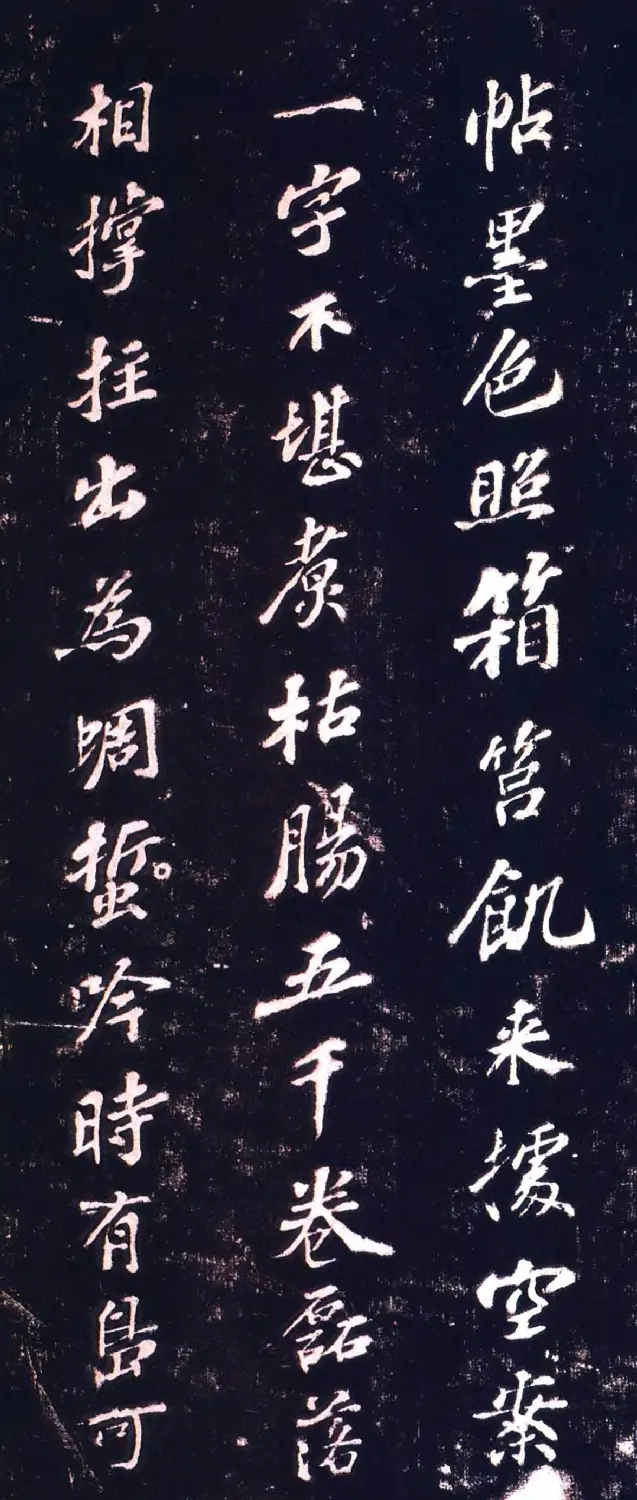 帖墨色照箱筥飢来據空案
一字不堪煑枯腸五千卷磊落
相撐拄出為蜩蜇吟時有島可